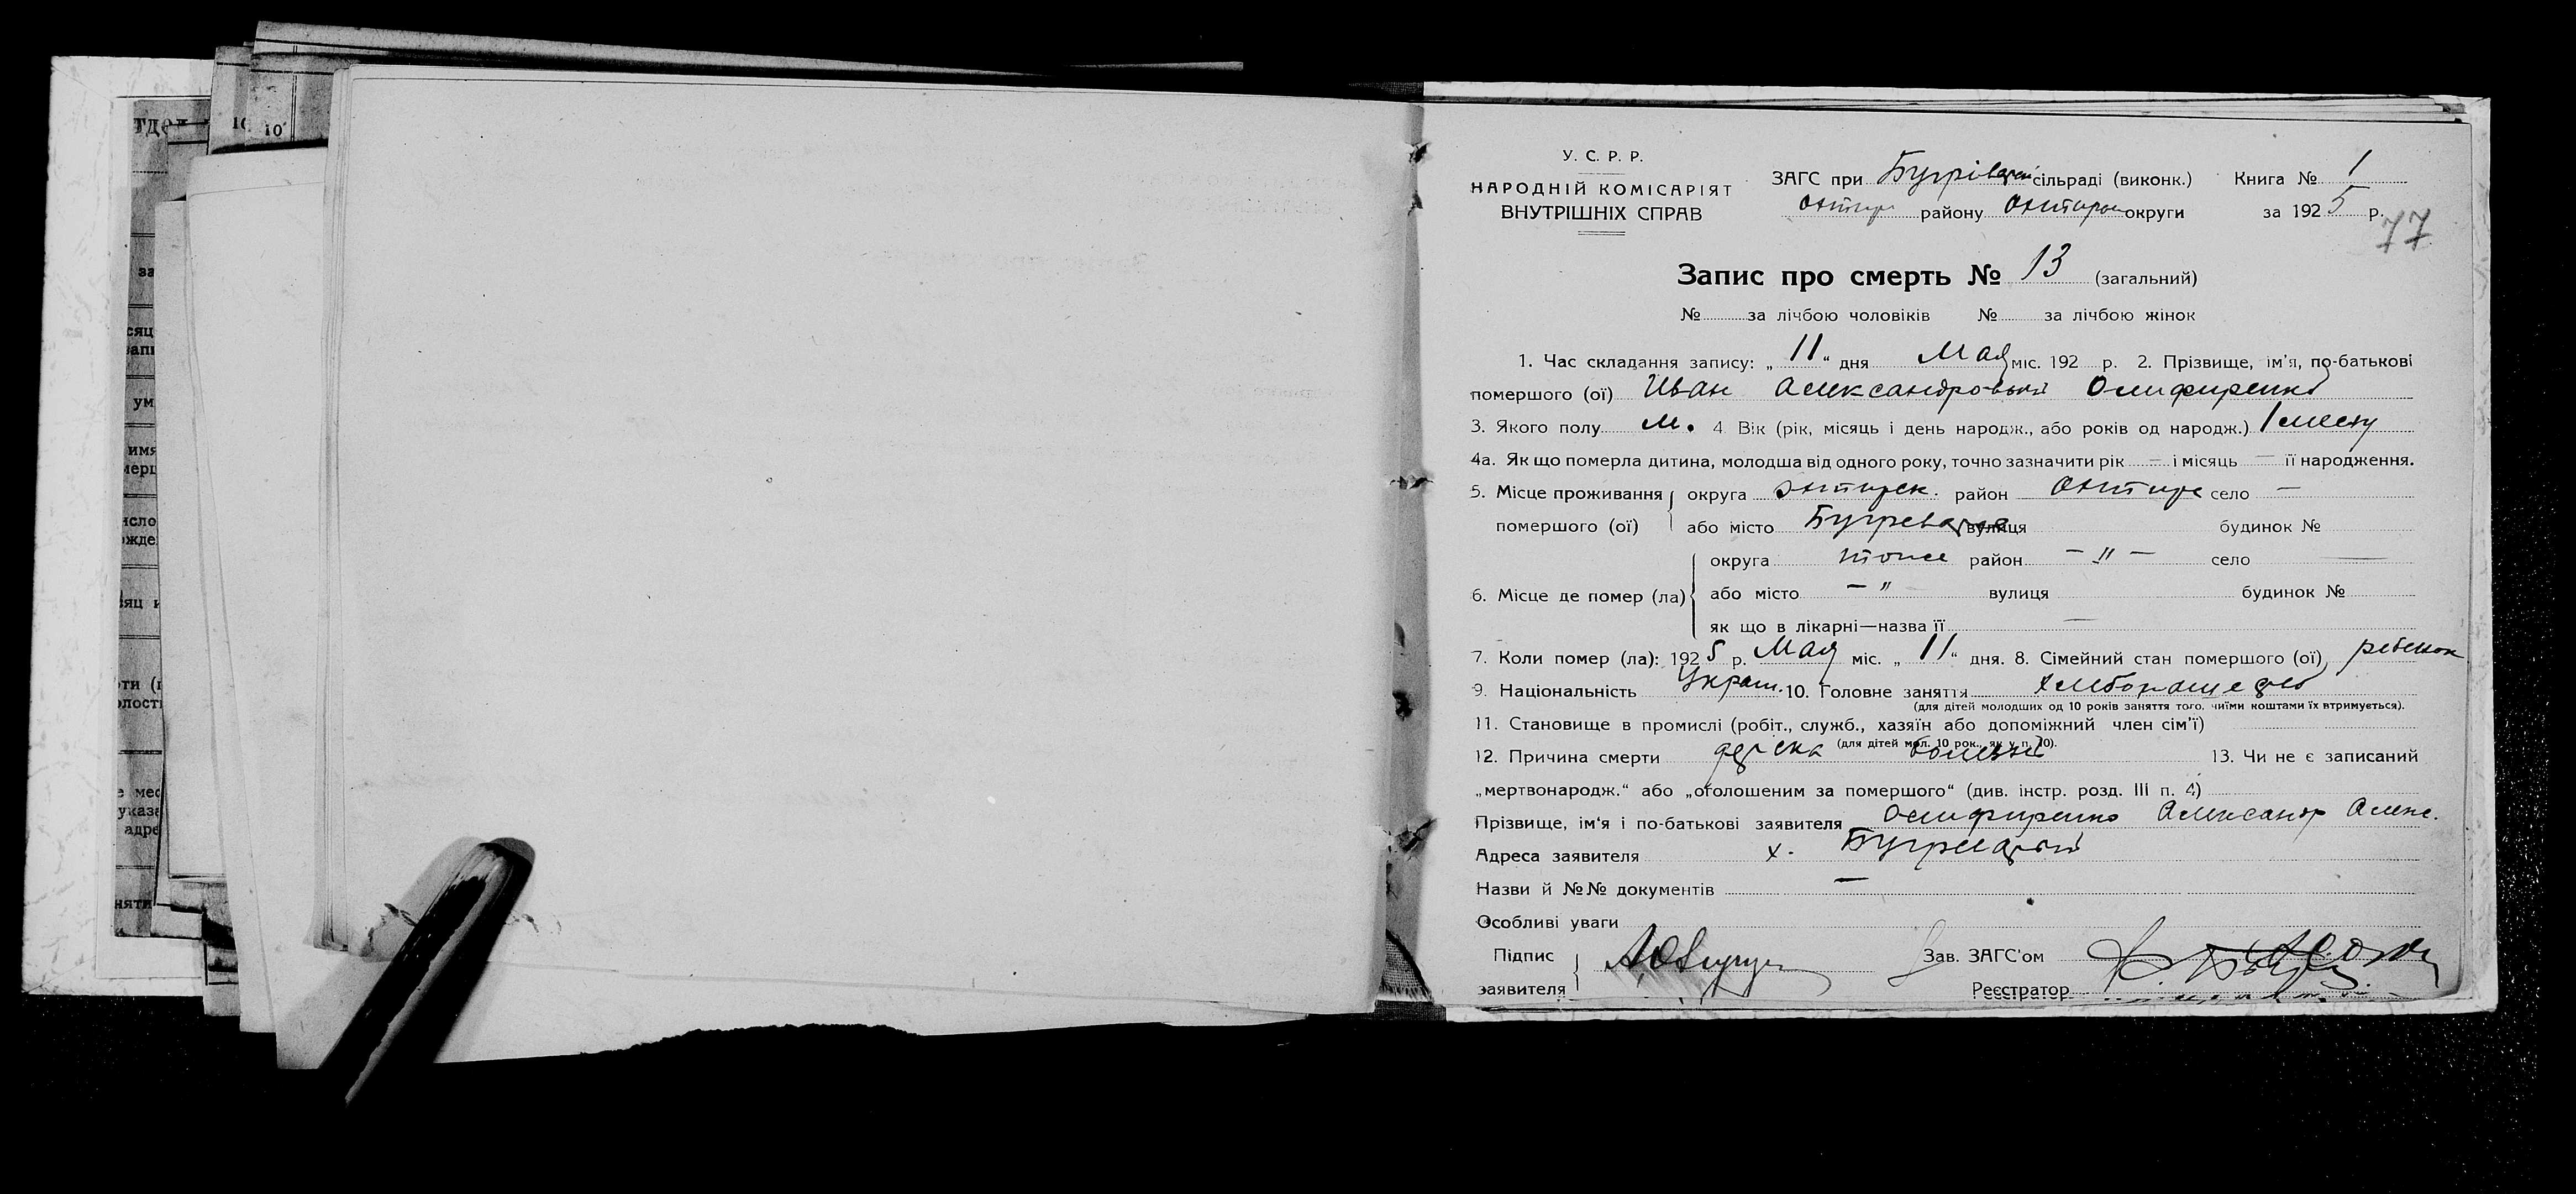 тдел
10
10
за
сяц
запи
ум
имя
мерш
исло
ожде
сяц и
рти (п
олост
е мес
указа
адре
няти
У. С. Р. Р.
НАРОДНІЙ КОМІСАРІЯТ
ВНУТРІШНІХ СПРАВ
ЗАГС при сільраді (виконк.) Книга № 1
Охтир району Охтирс округи за 1925 р.
77
Запис про смерть № 13 (загальний)
№ за лічбою чоловіків № за лічбою жінок
1. Час складання запису: „11“ дня Мая міс. 192 р. 2. Прізвище, ім'я, по-батькові
помершого (ої) Иван Александровый Олифиренко
3. Якого полу м. 4 Вік (рік, місяць і день народж., або років од народж.) 1 месяц
4а. Як що померла дитина, молодша від одного року, точно зазначити рік — і місяць — її народження.
5. Місце проживання помершого (ої) округа Охтирск. район Охтирс село —
або місто вулиця будинок №
6. Місце де помер (ла) округа тоже район — " — село —
або місто — " вулиця будинок №
як що в лікарні—назва її —
7. Коли помер (ла): 1925 р. Мая міс. „11“ дня. 8. Сімейний стан помершого (ої) ребенок
9. Національність Украин. 10. Головне заняття хлебопашество
(для дітей молодших од 10 років заняття того, чиїми коштами їх втримується).
11. Становище в промислі (робіт., служб., хазяїн або допоміжний член сім'ї)
(для дітей мол. 10 рок., як у п. 10).
12. Причина смерти детска болезнь 13. Чи не є записаний
„мертвонародж.“ або „оголошеним за помершого“ (див. інстр. розд. III п. 4)
Прізвище, ім'я і по-батькові заявителя Олифиренко Александр Алекс.
Адреса заявителя х.
Назви й №№ документів —
Особливі уваги
Підпис заявителя
Зав. ЗАГС'ом
Реєстратор